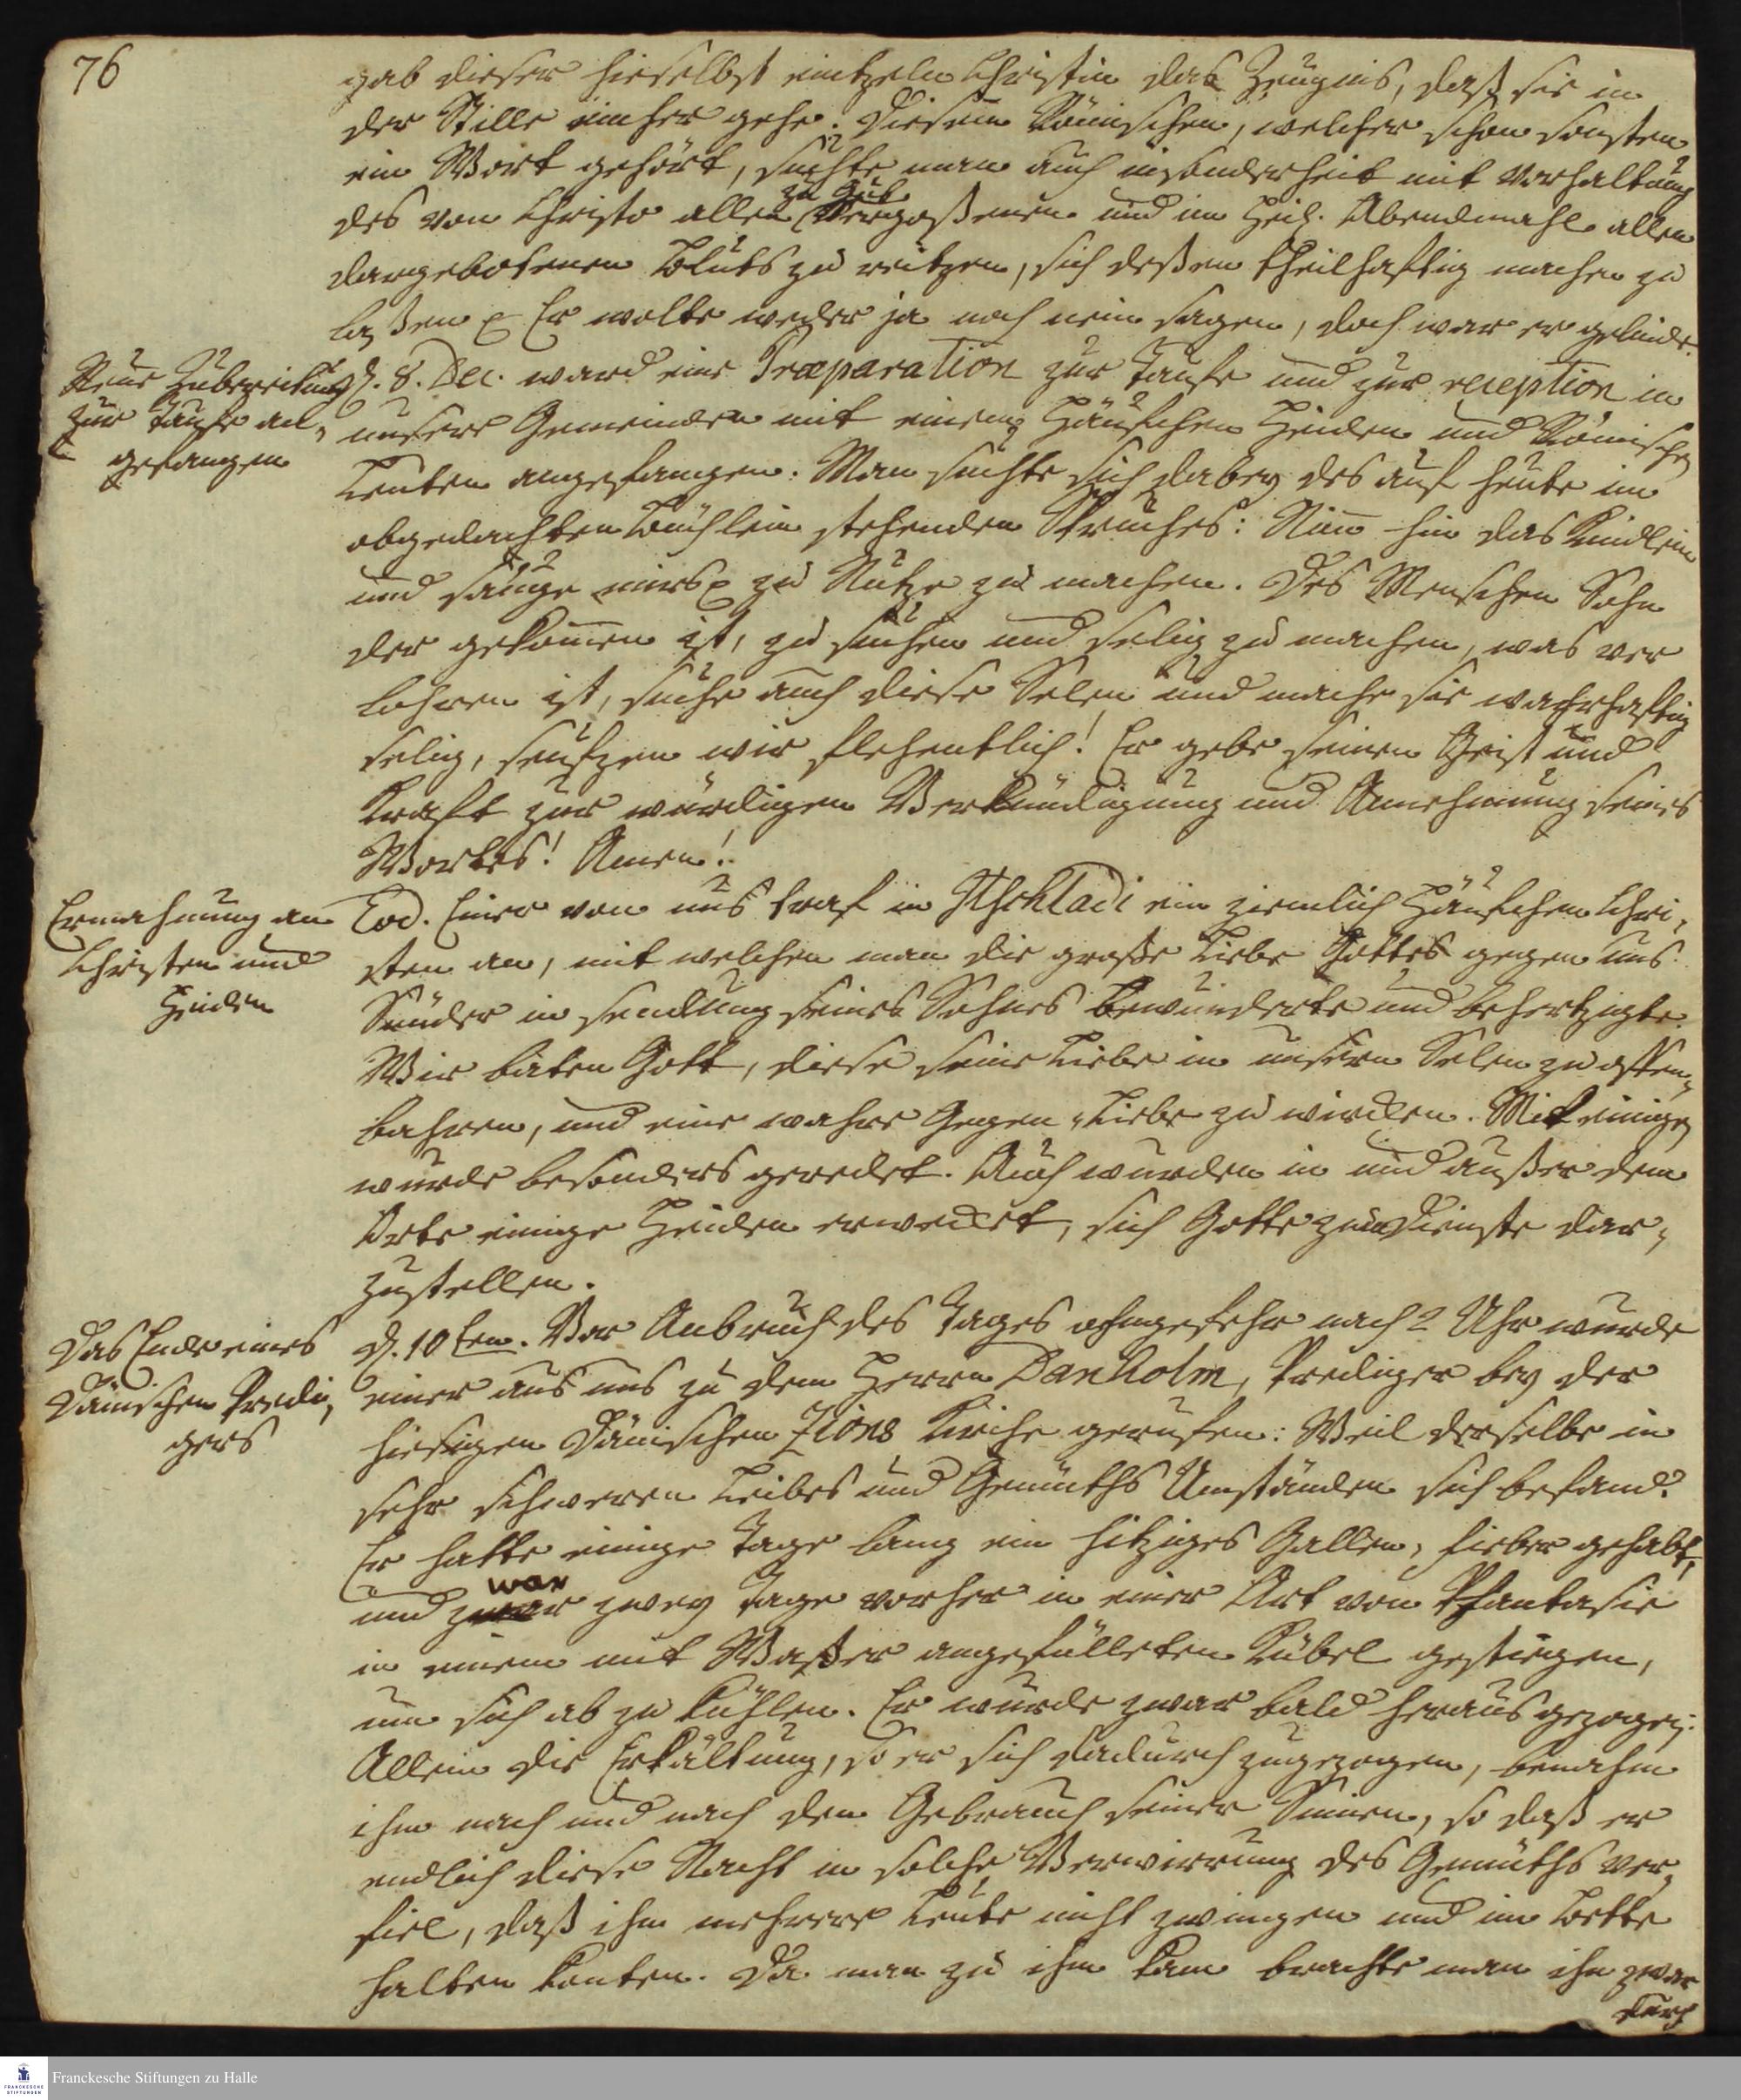 76
gab dieser hieselbst eintzeln Christin das Zeugnis, daß sie in
der Stille einher gehe. Diesem Römischen, welcher schon sonsten
ein Wort gehört, suchte man auch insonderheit mit Vorhaltung
zu gut
des von Christo allen vergoßenen und im Heil. Abendmahl allen
dargebotenen Bluts zu reitzen, sich deßen theilhaftig machen zu
laßen. Er wolte weder ja noch nein sagen, doch war er gelinde.
Neue Zubereitung
zur Taufe an-
gefangen
d. 8. Dec. ward eine Præparation zur Taufe und zur reception in
unsere Gemeinden mit einem Häufchen Heiden und Römischen
Leuten angefangen. Man suchte sich dabey des auf heute im
obgedachten Büchlein stehenden Spruches: Nim̄ hin das Kindlein
und säuge mirs zu Nutze zu machen. Des Menschen Sohn
der gekom̄en ist, zu suchen und selig zu machen, was ver
lohren ist, suche auch diese Selen und mache sie wahrhaftig
selig, seufzen wir flehentlich! Er gebe seinen Geist und
Kraft zur würdigen Verkündigung und Annehmung seines
Wortes! Amen!
Ermahnung an
Christen und
Heiden
Eod. Einer von uns traf in Itschladi ein ziemlich Häufchen Chri-
sten an, mit welchen man die große Liebe Gottes gegen uns
Sünder in sendung seines Sohnes bewunderte und behertzigte.
Wir baten Gott, diese seine Liebe in unsern Selen zu offen-
bahren, und eine wahre Gegen-Liebe zu wircken. Mit einigen
wurde besonders geredet. Auch wurden in und außer dem
Orte einige Heiden erwecket, sich Gotte zum Dienste dar-
zustellen.
Das Ende eines
Dänischen Predi-
gers
d. 10 ten. Vor Anbruch des Tages ohngefehr nach 2 Uhr wurde
einer aus uns zu dem Herrn Danholm, Prediger bey der
hiesigen Dänischen Zions Kirche gerufen: Weil derselbe in
sehr schweren Leibes und Gemüths Umständen sich befand.
Er hatte einige Tage lang ein hitziges Gallen-fieber gehabt,
war
und zwar zwey Tage vorher in einer Art von Phantasie
in einem mit Waßer angefülleten Kübel gestiegen,
um sich ab zu kühlen. Er wurde zwar bald heraus gezogen:
Allein die Erkältung, so er sich dadurch zugezogen, benahm
ihm nach und nach den Gebrauch seiner Sinnen, so daß er
endlich diese Nacht in solche Verwirrung des Gemüths ver-
fiel, daß ihn mehrere Leute nicht zwingen und im Bette
halten konten. Da man zu ihm kam brachte man ihn zwar
durch
FRANCKESCHE STIFTUNGEN
Franckesche Stiftungen zu Halle